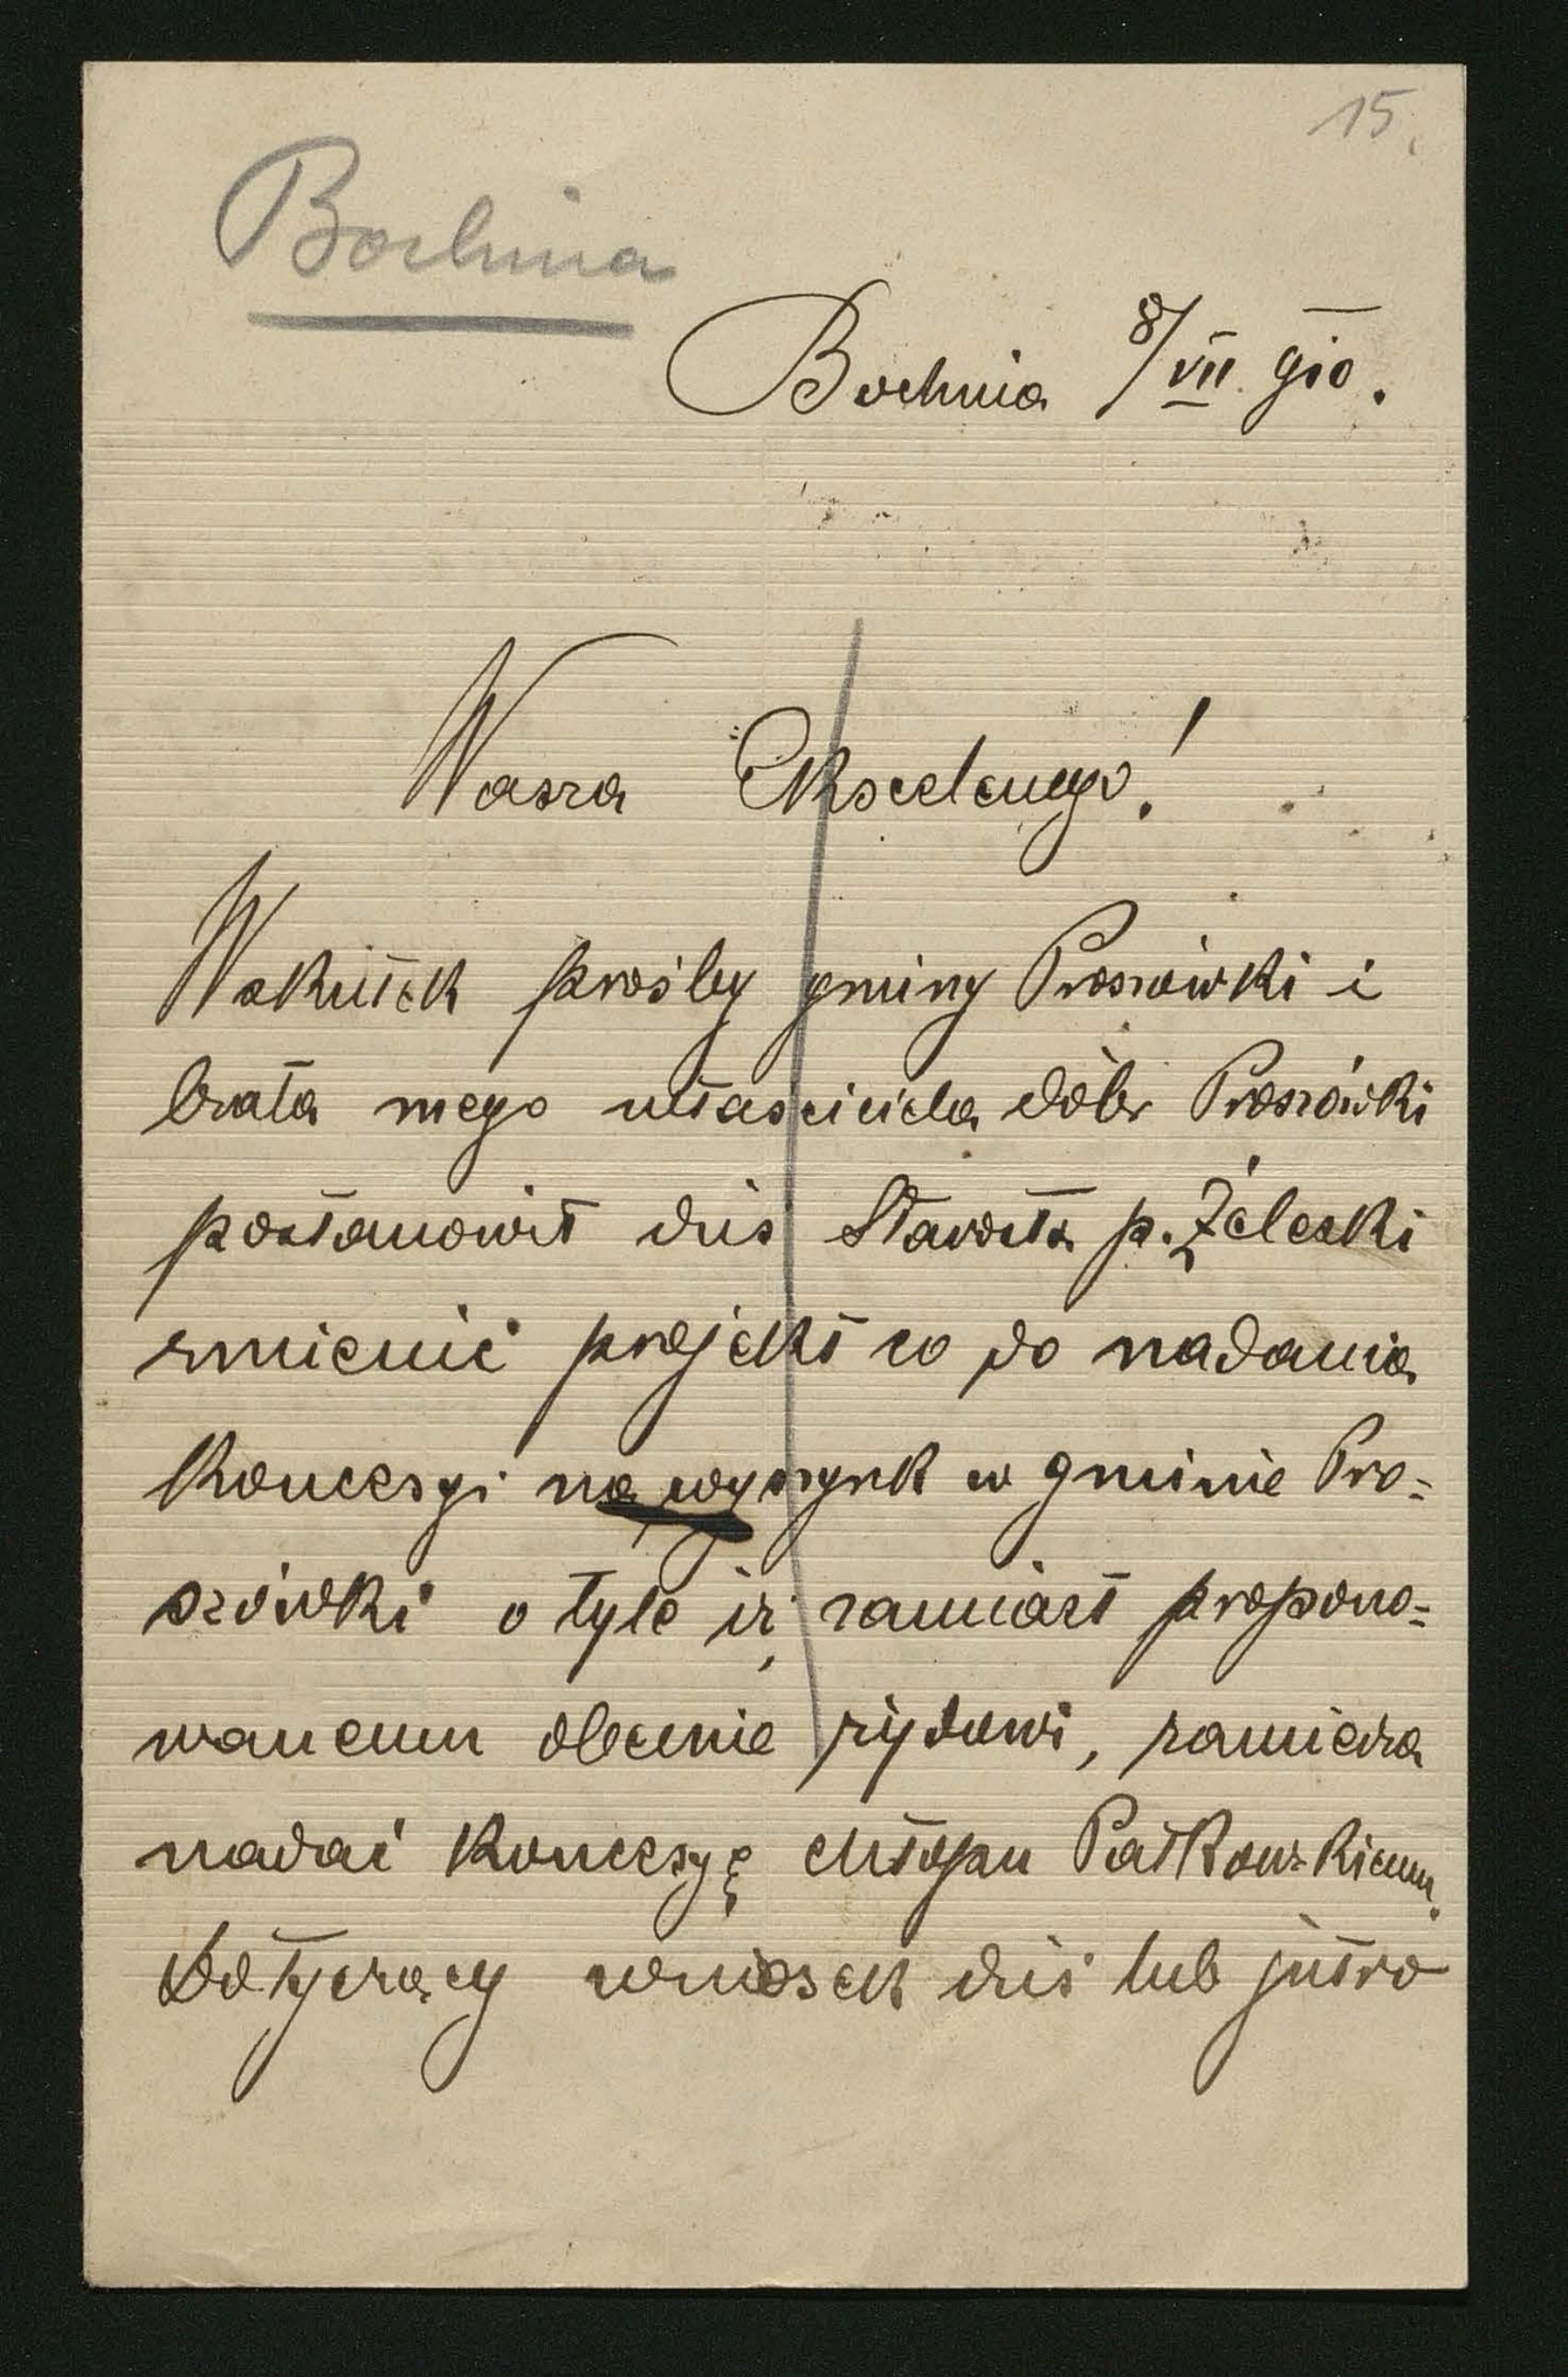 15.
Bochnia
Bochnia 8/VII 910.
Wasza Ekscelencyo!
Wskutek prośby gminy Proszówki i
brata mego właściciela dóbr Proszówki
postanowił dziś Starosta p. Żeleski
zmienić projekt co do nadania
koncesyi na wyszynk w gminie Pro=
szówki o tyle iż zamiast propono=
wanemu obecnie żydowi, zamierza
nadać koncesyę chłopu Patkowskiemu.
Dotyczący wniosek dziś lub jutro